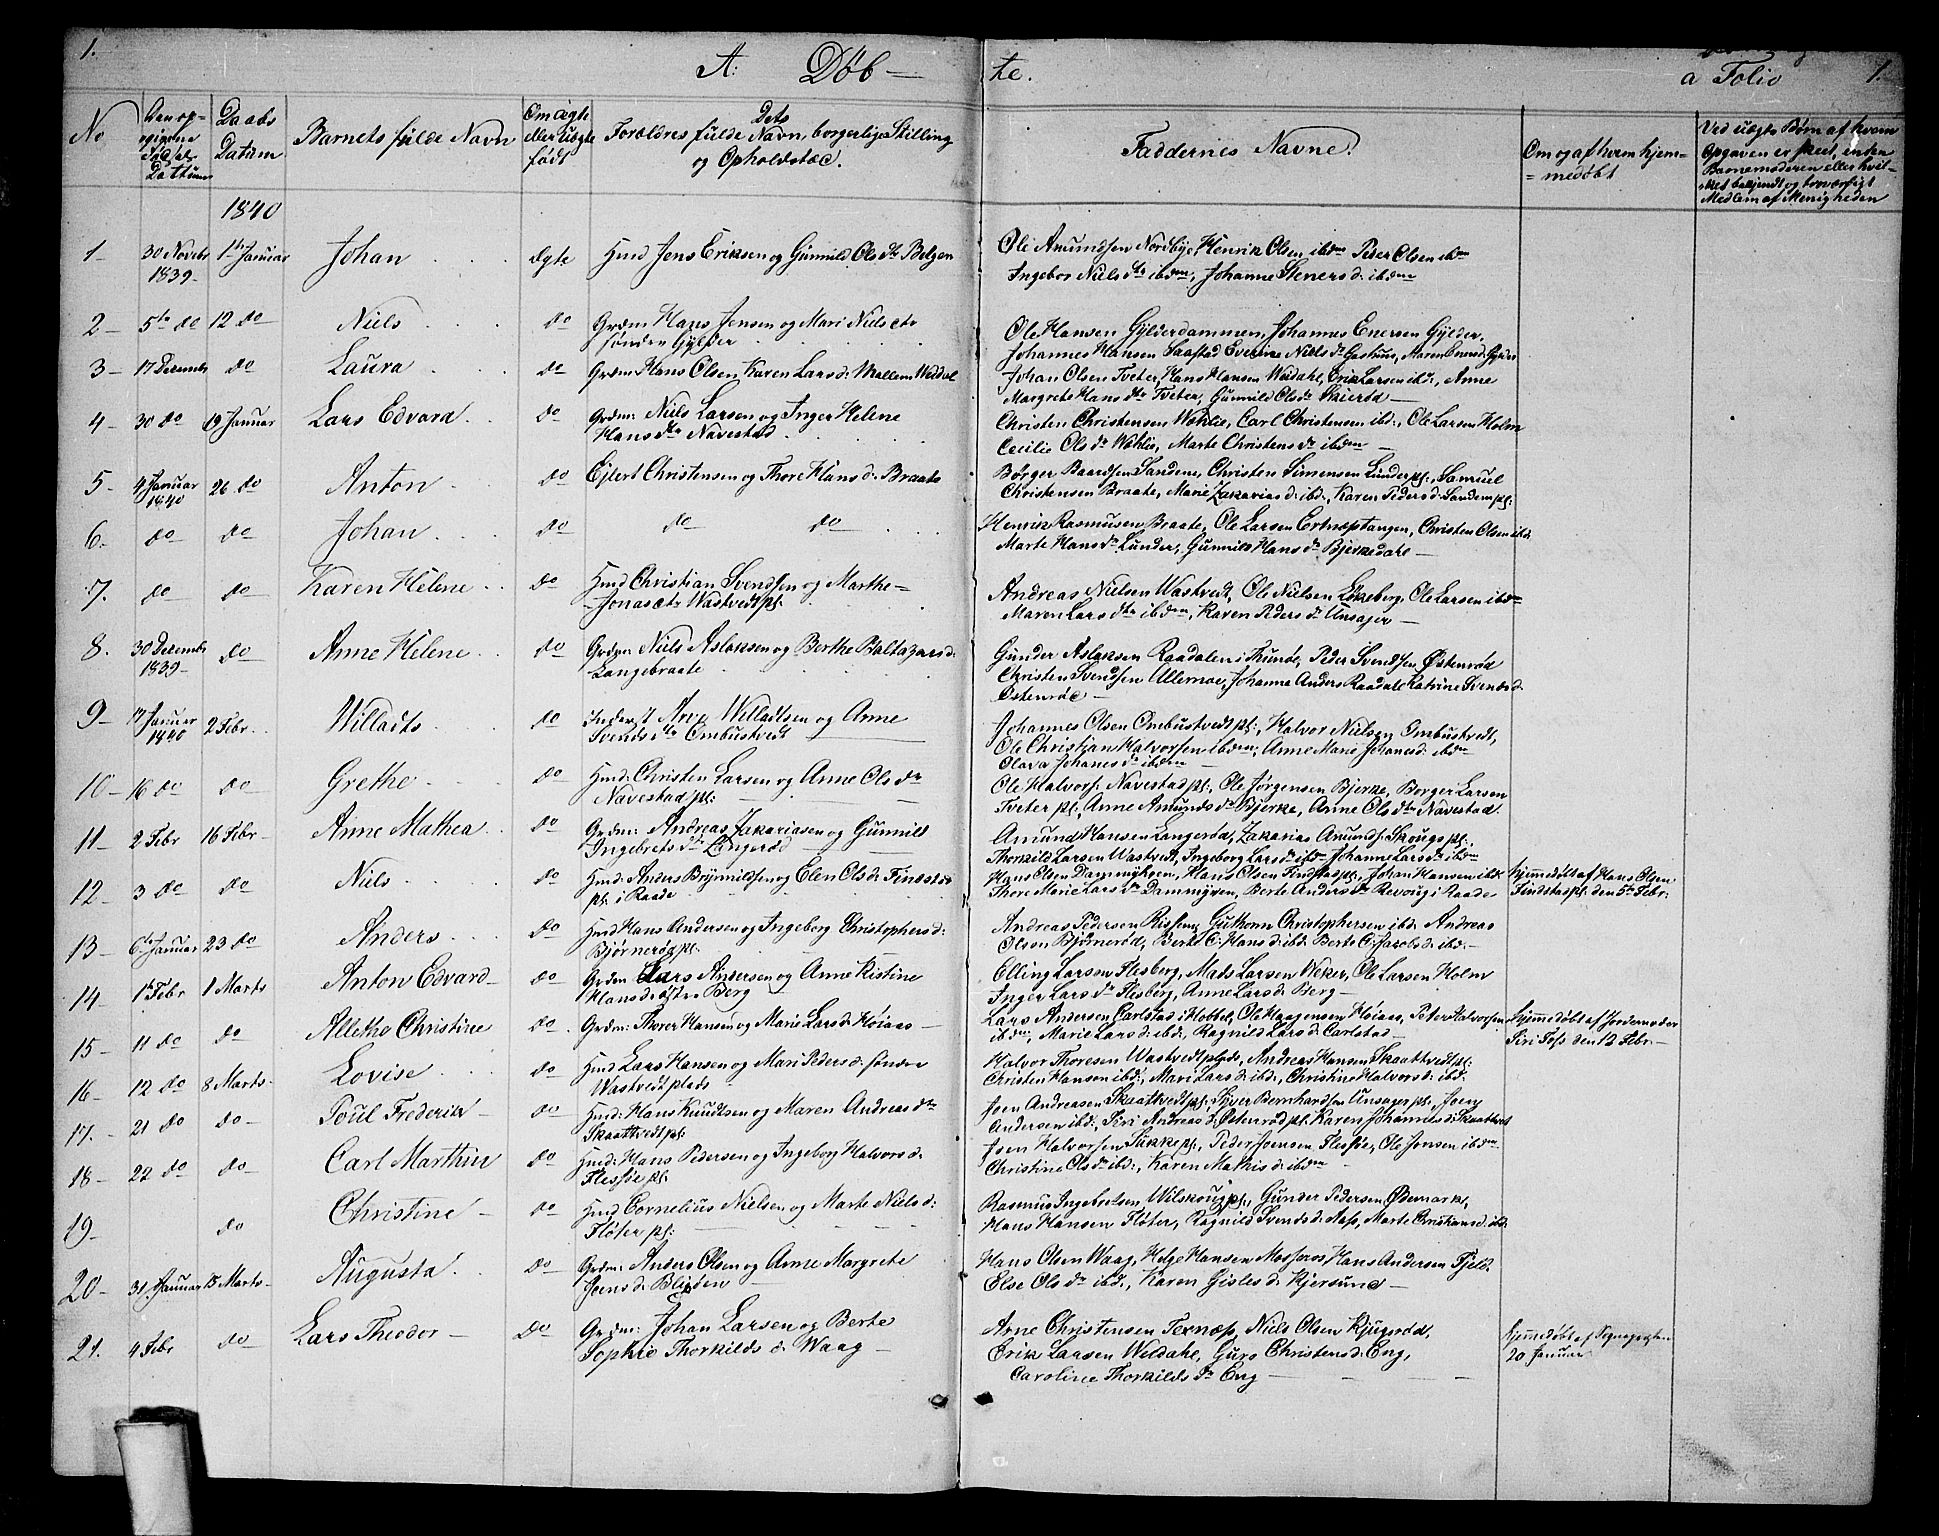 1.
A: Döb-
te.
a Folio 1.
No
Daabs Datum
Barnets fulde Navn
Om ægte eller Uægte født
Dets Foreldres fulde Navn, borgerlige Stilling
og Opholdsted.
Faddernes Navne.
Om og af hvem hjem-
=medøbt
Ved uægte Børn af hvem
Opgaven er skeet, enten
Barnemoderen eller hvil-
ket bekjendt og troværdigt
Medlem af Menigheden
1840
1- 30 Novbr 1839- 1ste Januar Johan ægte Hmd Jens Eriksen og Gunnild Olsdr Belgen
Ole Amundsen Nordbye, Henrik Olsen ibdm Peder Olsen ibdm
Ingebor Nielsdtr ibdem, Johanne Stenersd: ibdem
2- 5te do 12 do Niels do Grdm Hans Jensen og Mari Nielsdtr
søndre Gylder
Ole Hansen Gylderdammen, Johannes Enersen Gylder,
Johannes Hansen Saastad Everine Nielsdr Geshuus, Maren Enersd: Gylder
3- 17 Decembr do Laura do Grdm Hans Olsen, Karen Larsd: Mellem Weidal
Johan Olsen Tveter, Hans Hansen Weidahl, Erik Larsen ibd:, Anne
Margrete Hansdtr Tveter, Gunnild Olsdr Skierød-
4- 30 do 19 Januar Lars Edvard do Grdm: Niels Larsen og Inger Helene
Hansdtr Navestad
Christen Christensen Wahlie, Carl Christensen ibd:, Ole Larsen Holm
Cecilie Olsdr Wahlie, Marte Christensdr ibdem-
5- 4 Januar 1840 26 do Anton do Ejlert Christensen og Thore Hansd: Braate
Börger Baardsen Sandene, Christen Simensen Lunder pl:, Samuel
Christensen Braate, Marie Zakariasd: ibd:, Karen Pedersd: Sandem pl:
6. do do Johan do do do
Henrik Rasmusen Braate, Ole Larsen Ertnæstangen, Christen Olsen ibd:
Marte Hansdr Lunder, Gunnild Hansdr Bjerkedahl-
7. do do Karen Helene do Hmd Christian Svendsen og Marthe-
-Jonasdtr Wastvedt pl:
Andreas Nielsen Wastvedt, Ole Nielsen Lökeberg, Ole Larsen ibdm
Maren Larsdtr ibdem, Karen Pedersdr Unsager-
8. 30 Decembr 1839- do Anne Helene do Grdm: Niels Aslaksen og Berthe Baltazarsd:
Langebraate
Gunder Aslaksen Raadalen i Thunöe, Peder Svendsen Østenrød
Christen Svendsen Ullernoe, Johanne Anders Raadale Katrine Svendsd:
Østenröd-
9- 17 Januar 1840 2 Febr. Willadts do Inderst Arve Willadtsen og Anne
Svendsdtr Ombustvedt
Johannes Olsen Ombustvedt pl:, Halvor Nielsen Ombustvedt,
Ole Christian Halvorsen ibdem, Anne Marie Johanesd: ibdm
Olava Johanesdr ibdem-
10- 16 do do Grethe do Hmd: Christen Larsen og Anne Olsdr
Navestad pl:
Ole Halvors: Navestad pl:, Ole Jørgensen Bjerke, Børger Larsen
Tveter pl:, Anne Amundsdr Bjerke, Anne Olsdtr Navestad
11- 2 Febr 16 Febr- Anne Mathea do Grdm: Andreas Zakariasen og Gunnild
Ingebretsdtr Langerød
Amund Hansen Langerød, Zakarias Amunds: Skougs pl:,
Thorkild Larsen Wastvedt, Ingeborg Larsdr ibdm Johanne Larsdr ibdm
12- 3 do do Niels do Hmd: Anders Brynnildsen og Elen Olsd: Findstad
pl: i Raade
Hans Olsen Dammyhren, Hans Olsen Findstad pl:, Johan Hansen ibdm
Thore Marie Larsdr Dammyren, Berte Andersdr Revoug i Raade
hjemmedøbt af Hans Olsen
Findstad pl: den 5te Febr:
13- 6te Januar 23 do Anders do Hmd Hans Andersen og Ingeborg Christophersd:
Bjørnerød pl:
Andreas Pedersen Rissen, Guthorm Christophersen ibd: Andreas
Olsen Bjørnerød, Berte C: Hansd: ibd: Berte C: Jacobsd: ibd:-
14- 1te Febr 1 Marts Anton Edvard- do Grdm: Lars Andersen og Anne Kistine
Hansd: østre Berg
Elling Larsen Flesberg, Mads Larsen Weker, Ole Larsen Holm
Inger Larsdr Flesberg, Anne Larsd: Berg-
15- 11 do do Alletha Christine do Grdm: Thorer Hansen og Marie Larsd: Høiaas-
Lars Andersen Carlstad i Hobbel, Ole Haagensen Høiaas, Peter Halvorsen
ibdm:, Marie Larsd: ibd:, Ragnild Larsd: Carlstad-
hjemmedøbt af Jordemoder
Siri Foss den 12 Febr:-
16- 12 do 8 Marts- Lovise do Hmd Lars Hansen og Mari Pedersd: søndre
Wastvedt plads
Halvor Thoresen Wastvedt plads, Andreas Hansen Skaattvedt pl:
Christen Hansen ibd:, Mari Larsd: ibd:, Christine Halvorsd: ibd:
17.- 21 do do- Poul Frederik- do Hmd: Hans Knudtsen og Maren Andreasdtr
Skaattvedt pl:
Joen Andreasen Skaattvedt pl:, Syver Bernhardsen Unsager pl:, Joen
Andersen ibd:, Siri Andreasd: Østenrød pl: Karen Johannesd: Skaattvedt
18- 22 do do Carl Marthin do Hmd: Hans Pedersen og Ingeborg Halvorsd:
Flessie pl:
Joen Halvorsen Sukke pl:, Peder Joensen Flessie, Ole Jensen ibdm
Christine Olsdr ibd:, Karen Mathisd: ibdem
19- do Christine- do Hmd Cornelius Nielsen og Marte Nielsd:
Fløter pl:
Rasmus Ingebretsen Wilskoug pl:, Gunder Pedersen Ødemark,
Hans Hansen Fløter, Ragnild Svendsd: Aass, Marte Cristiansd: ibd:
20- 31 Januar 15 Marts- Augusta do- Grdm: Anders Olsen og Anne Margrete
Joensd: Bligden
Hans Olsen Waag, Helge Hansen Mosseros, Hans Andersen Fjeld.
Else Olsdr ibd:, Karen Gislesd: Kjersund-
21. 4 Febr do Lars Theodor- Do Grdm: Johan Larsen og Berte
Sophie Thorkildsd: Waag-
Arne Christensen Texnæs, Niels Olsen Kjugerød,
Erik Larsen Weidahl, Guro Christensd: Eng,
Caroline Thorkildsdr Eng-
hjemmedøbt af
20 Januar